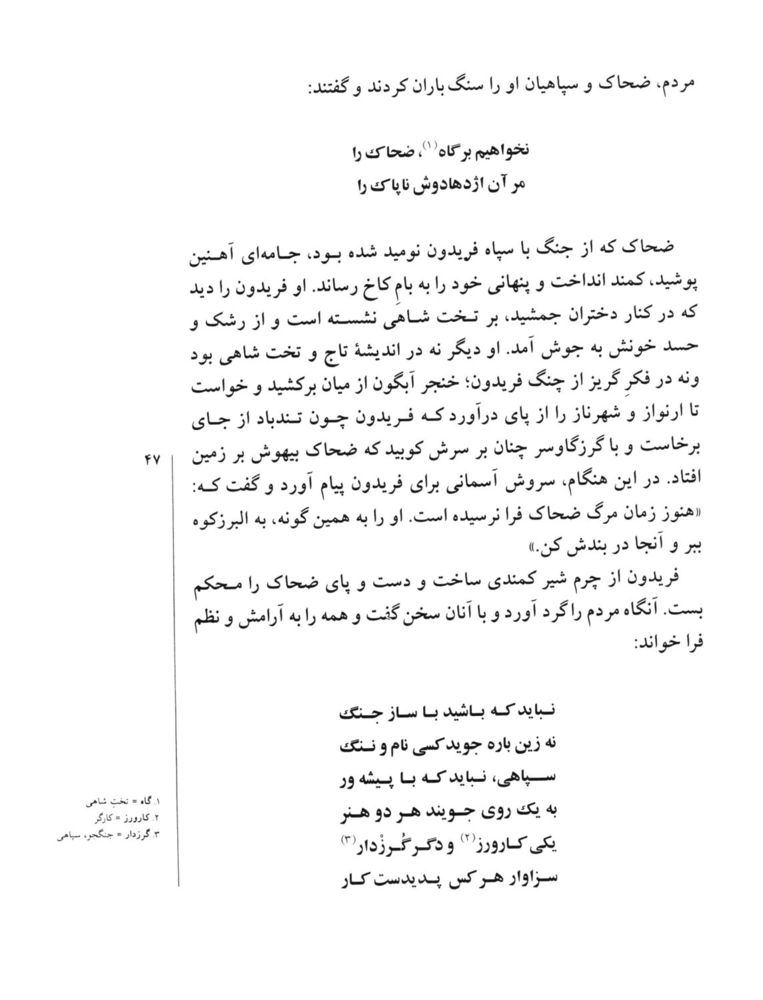 مردم، ضحاک و سپاهیان او را سنگ‌باران کردند و گفتند:
نخواهیم برگاه(۱)، ضحاک را
مر آن اژدهادوش ناپاک را
ضحاک که از جنگ با سپاه فریدون نومید شده بود، جامه‌ای آهنین
پوشید، کمند انداخت و پنهانی خود را به بامِ کاخ رساند. او فریدون را دید
که در کنار دختران جمشید، بر تخت شاهی نشسته است و از رشک و
حسد خونش به جوش آمد. او دیگر نه در اندیشهٔ تاج و تخت شاهی بود
ونه در فکرِ گریز از چنگ فریدون؛ خنجر آبگون از میان برکشید و خواست
تا ارنواز و شهرناز را از پای درآورد که فریدون چون تندباد از جای
برخاست و با گرزگاوسر چنان بر سرش کوبید که ضحاک بیهوش بر زمین
افتاد. در این هنگام، سروش آسمانی برای فریدون پیام آورد و گفت که:
«هنوز زمان مرگ ضحاک فرا نرسیده است. او را به همین گونه، به البرزکوه
ببر و آنجا در بندش کن.»
فریدون از چرم شیر کمندی ساخت و دست و پای ضحاک را محکم
بست. آنگاه مردم را گرد آورد و با آنان سخن گفت و همه را به آرامش و نظم
فرا خواند:
نباید که باشید با ساز جنگ
نه زین باره جوید کسی نام و ننگ
سپاهی، نباید که با پیشه ور
به یک روی جویند هر دو هنر
یکی کارورز(۲) و دگر گُرزْدار(۳)
سزاوار هر کس پدیدست کار
۴۷
۱. گاه = تختِ شاهی
۲. کارورز = کارگر
۳. گرزدار = جنگجو، سپاهی